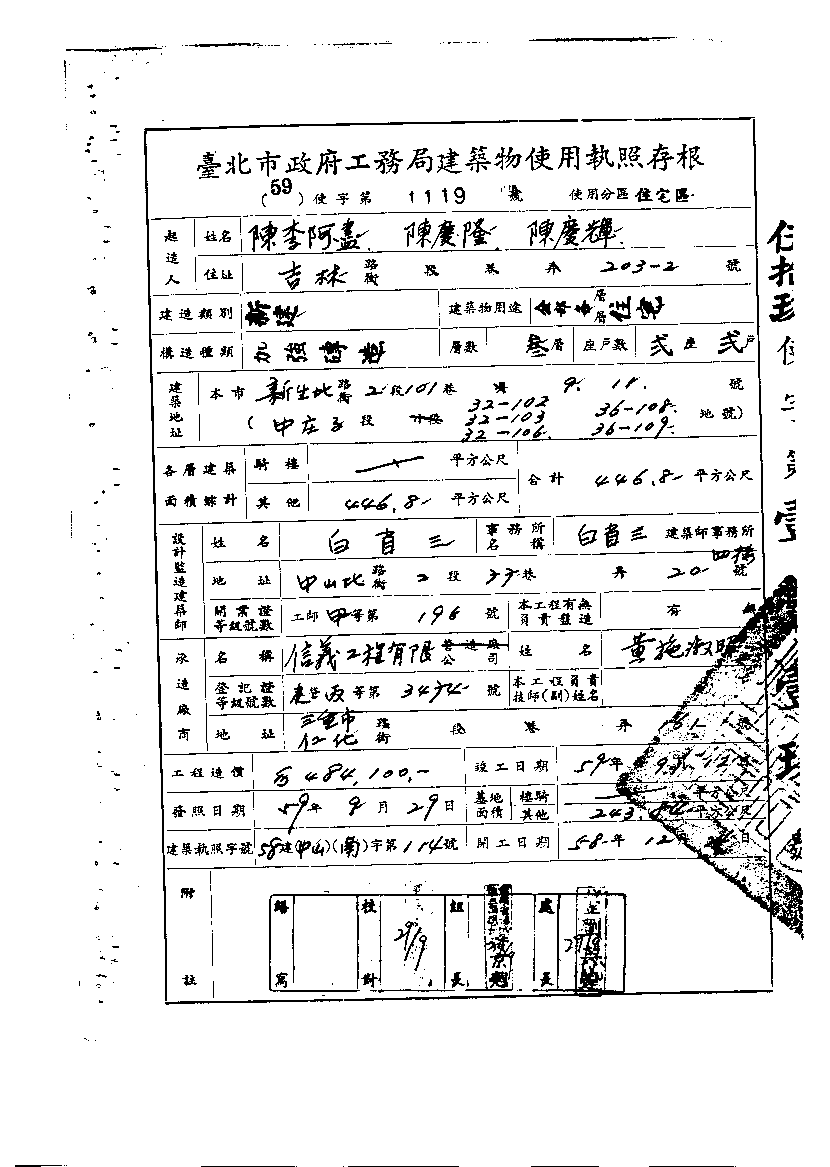 臺北市政府工務局建築物使用執照存根
(59)使字第 1119 號 使用分區 住宅區
起造人 姓名 陳李阿盡 陳慶隆 陳慶輝
住址 吉林 路街 段 巷 弄 203-2 號
建造類別 新建 建築物用途 全部各層層住宅
構造種類 加強磚造 層數 叁層 座戶數 弍座 弍戶
建築地址 本市 新生北路街 2段101巷 9. 11. 號
(中庄子段 小段 32-102 32-103 32-106. 36-108. 36-109. 地號)
各層建築面積綜計 騎樓 平方公尺 合計 446.8 平方公尺
其他 446.8 平方公尺
設計監造建築師 姓名 白省三 事務所名稱 白省三 建築師事務所
地址 中山北路街 2段 33巷 弄 20 四樓 號
開業證等級號數 工師甲等第 196 號 本工程有無負責監造 有
承造廠商 名稱 信義工程有限 營造廠公司 姓名 黃施淑
登記證等級號數 等第 3474 號 本工程負責技師(副)姓名
地址 三重市仁化 路街 段 巷 弄 號
工程造價 484,100.- 竣工日期 59年 9. 12
發照日期 59年 9月 29日 基地面積 樓騎 平方公尺
其他 243. 平方公尺
建築執照字號 58建(中山)(南)字第114號 開工日期 58年 12 日
附註 繕寫 校對 29/9 組長 處長
使字第壹